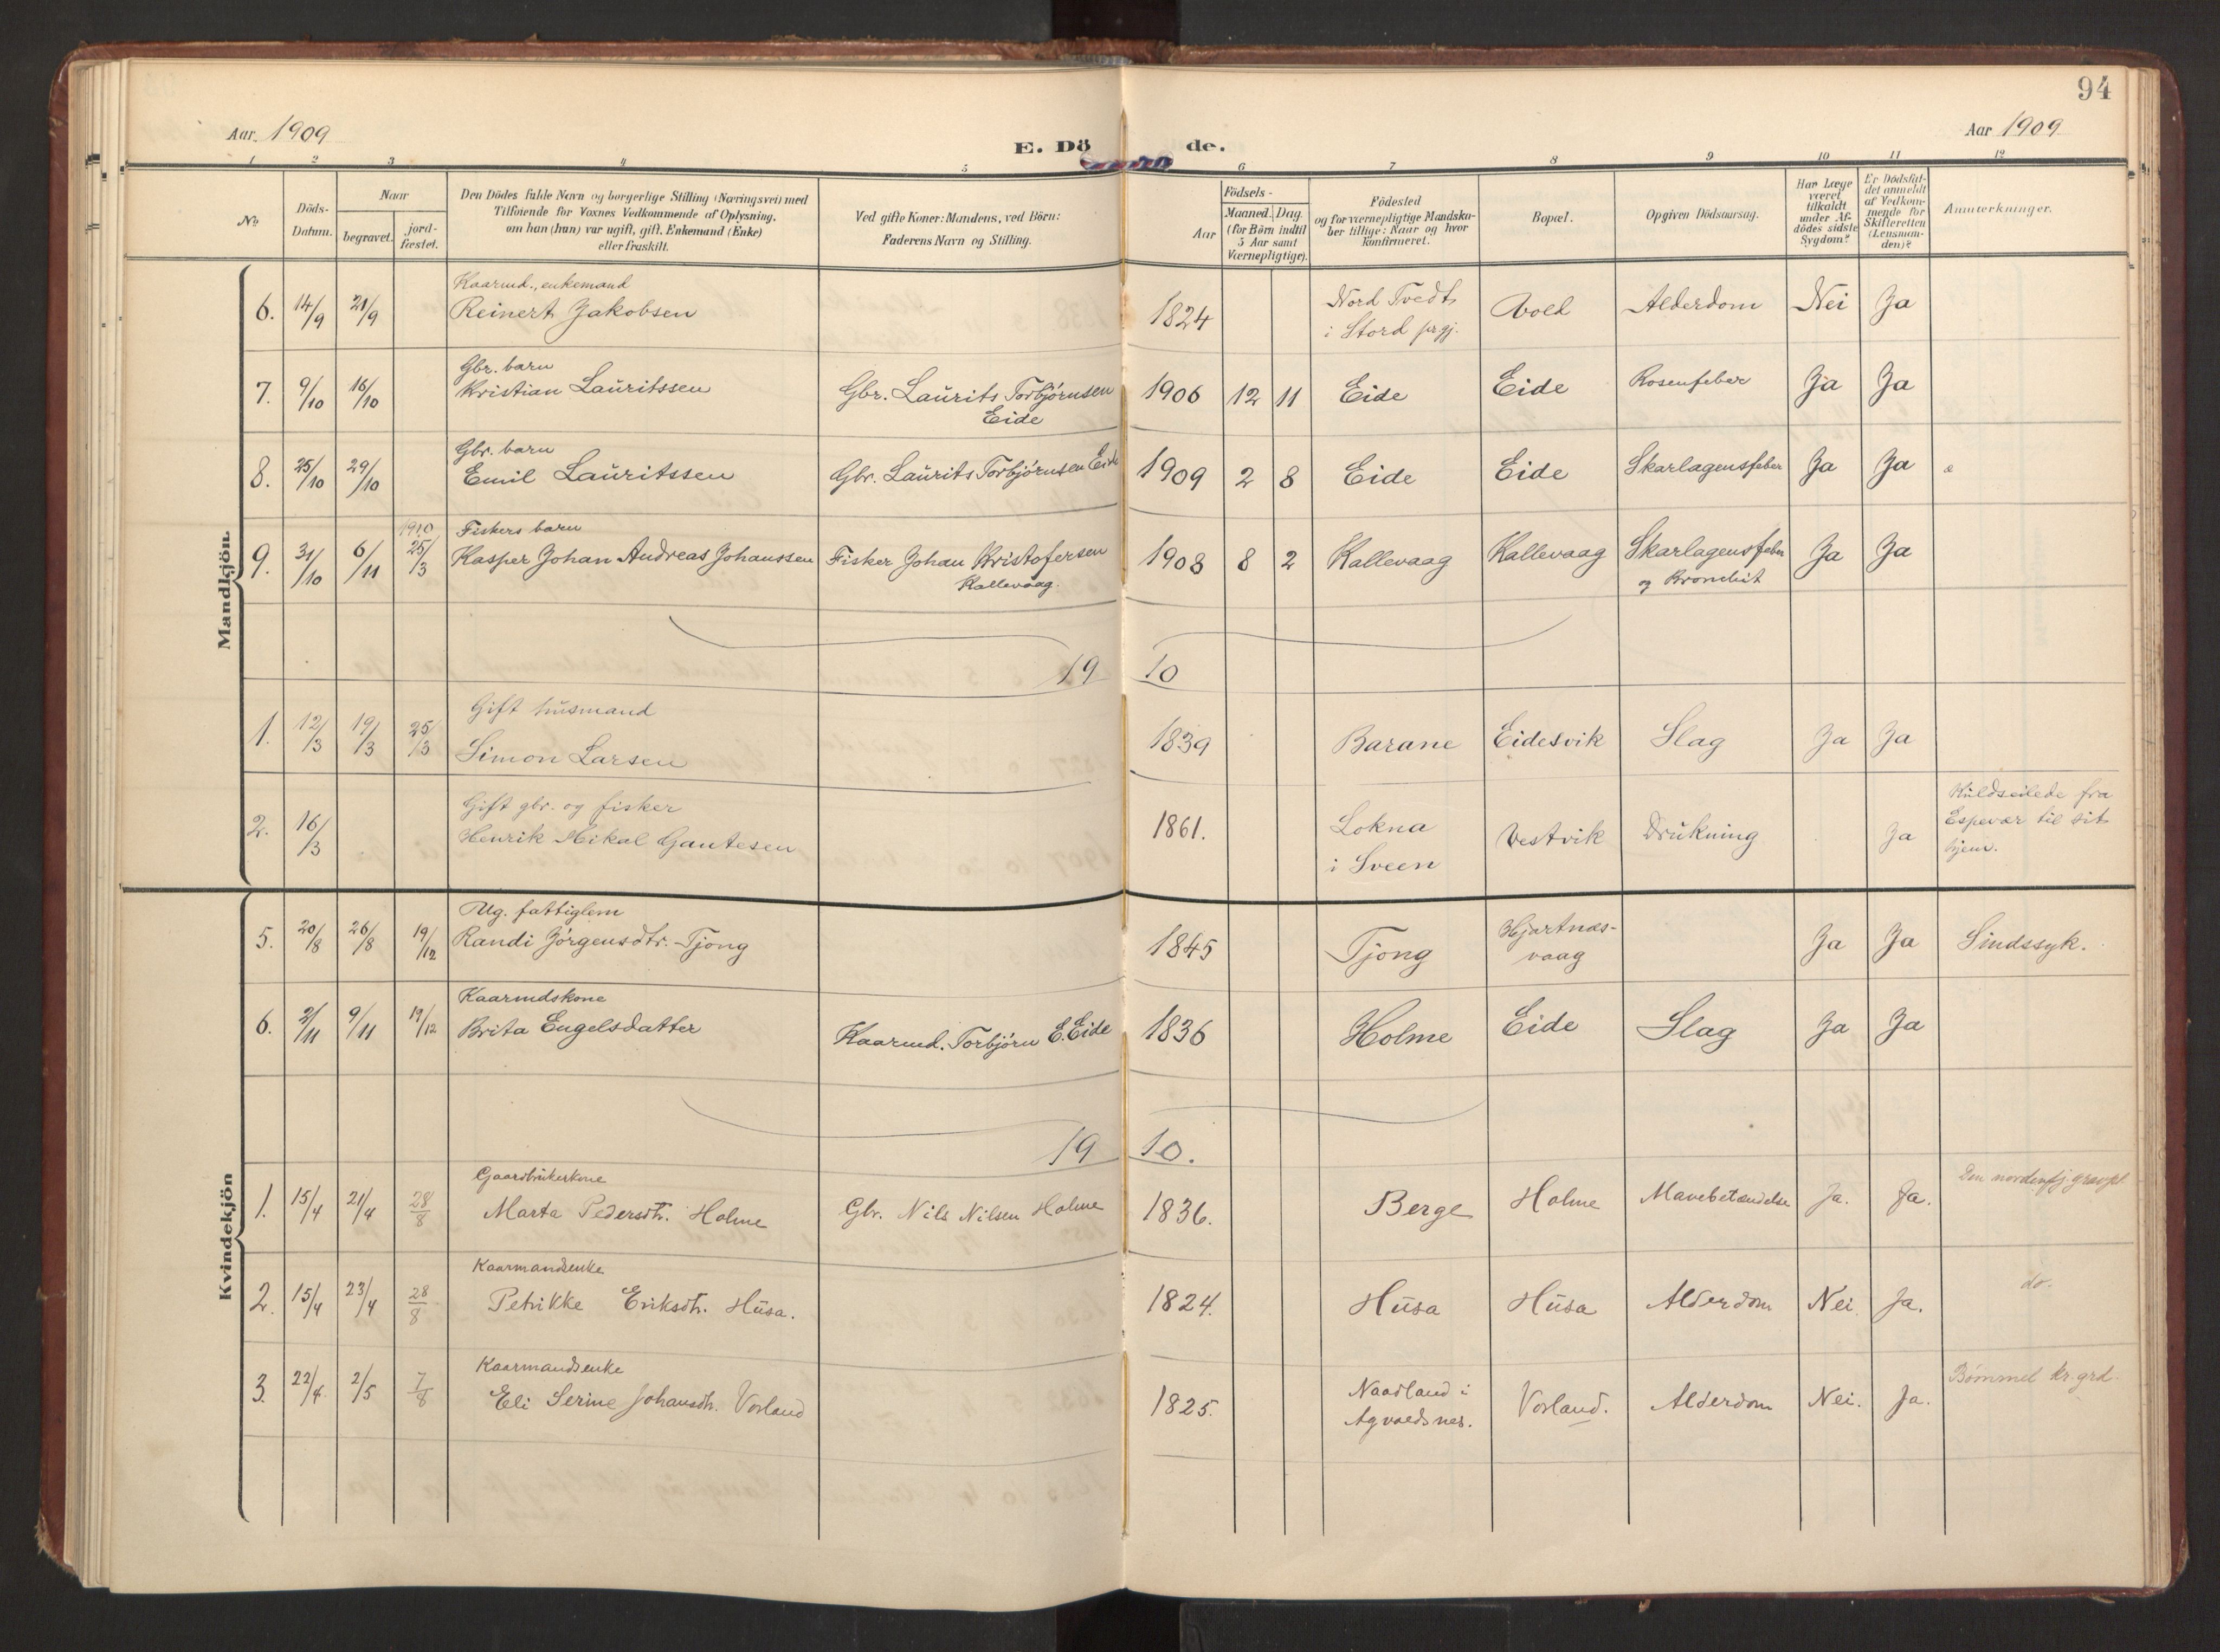 94
Aar. 1909
E. Dö de.
Aar 1909
1 2 3 4 5 6 7 8 9 10 11 12
No.
Döds-Datum.
Naar
begravet.
jord-fæstet.
Den Dödes fulde Navn og borgerlige Stilling (Næringsvei) med
Tilföiende for Voxnes Vedkommende af Oplysning,
om han (hun) var ugift, gift, Enkemand (Enke)
eller fraskilt.
Ved gifte Koner: Mandens, ved Börn:
Faderens Navn og Stilling.
Födsels-
Aar
Maaned. Dag.
(for Börn indtil
5 Aar samt
Værnepligtige).
Födested
og for værnepligtige Mandska-
ber tillige: Naar og hvor
konfirmeret.
Bopæl.
Opgiven Dödsaarsag.
Har Læge
været
tilkaldt
under Af-
dödes sidste
Sygdom?
Er Dödsfal-
det anmeldt
af Vedkom-
mende for
Skifteretten
(Lensman-
den)?
Anmærkninger.
Mandkjön.
Kaarmd., enkemand
6. 14/9 21/9 Reinert Jakobsen 1824 Nord Tvedt i Stord prgj. Vold Alderdom Nei Ja
Gbr. barn
7. 9/10 16/10 Kristian Lauritssen Gbr. Laurits Torbjörnsen Eide 1906 12 11 Eide Eide Rosenfeber Ja Ja
Gbr. barn
8. 25/10 29/10 Emil Lauritssen Gbr. Laurits Torbjörnsen Eide 1909 2 8 Eide Eide Skarlagensfeber Ja Ja
1910 Fiskers barn
9. 31/10 6/11 25/3 Kasper Johan Andreas Johanssen Fisker Johan Kristofersen Kallevaag. 1908 8 2 Kallevaag Kallevaag Skarlagensfeber og Bronchit Ja Ja
19 10
Gift husmand
1. 12/3 19/3 25/3 Simon Larsen 1839 Barane Eidesvik Slag Ja Ja
Gift gbr. og fisker
2. 16/3 Henrik Mikal Gautesen 1861. Lokna i Sveen Vestvik Drukning Ja Kuldseilede fra Espevær til sit hjem.
Kvindekjön
Ug. fattiglem
5. 20/8 26/8 19/12 Randi Jörgensdtr. Tjong 1845 Tjong Hjartnæs-vaag Ja Ja Sindssyk.
Kaarmdskone
6. 2/11 9/11 19/12 Brita Engelsdatter Kaarmd. Torbjörn E. Eide 1836 Holme Eide Slag Ja Ja
19 10.
Gaardbrukerkone
1. 15/4 21/4 28/8 Marta Pedersdtr. Holme Gbr. Nils Nilsen Holme 1836. Berge Holme Mavebetændelse Ja. Ja. Den nordenfj. gravpl.
Kaarmandsenke
2. 15/4 23/4 28/8 Petrikke Eriksdtr. Husa. 1824. Husa Husa Alderdom Nei. Ja. do.
Kaarmandsenke
3. 22/4. 2/5 7/8 Eli Serine Johansdtr. Vorland 1825. Naadland i Agvaldsnes. Vorland. Alderdom Nei. Ja. Bömmel kr.grd.